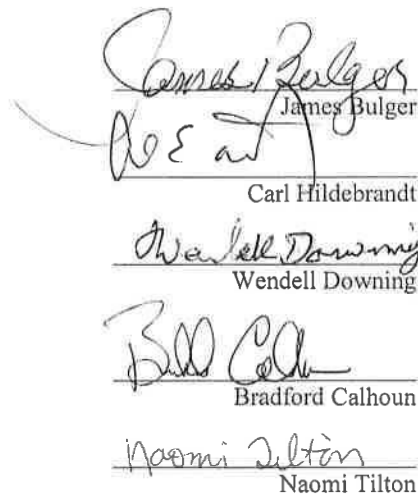 James Bulger
James Bulger
Carl Hildebrandt
Wendell Downing
Wendell Downing
Bradford Calhoun
Naomi Tilton
Naomi Tilton